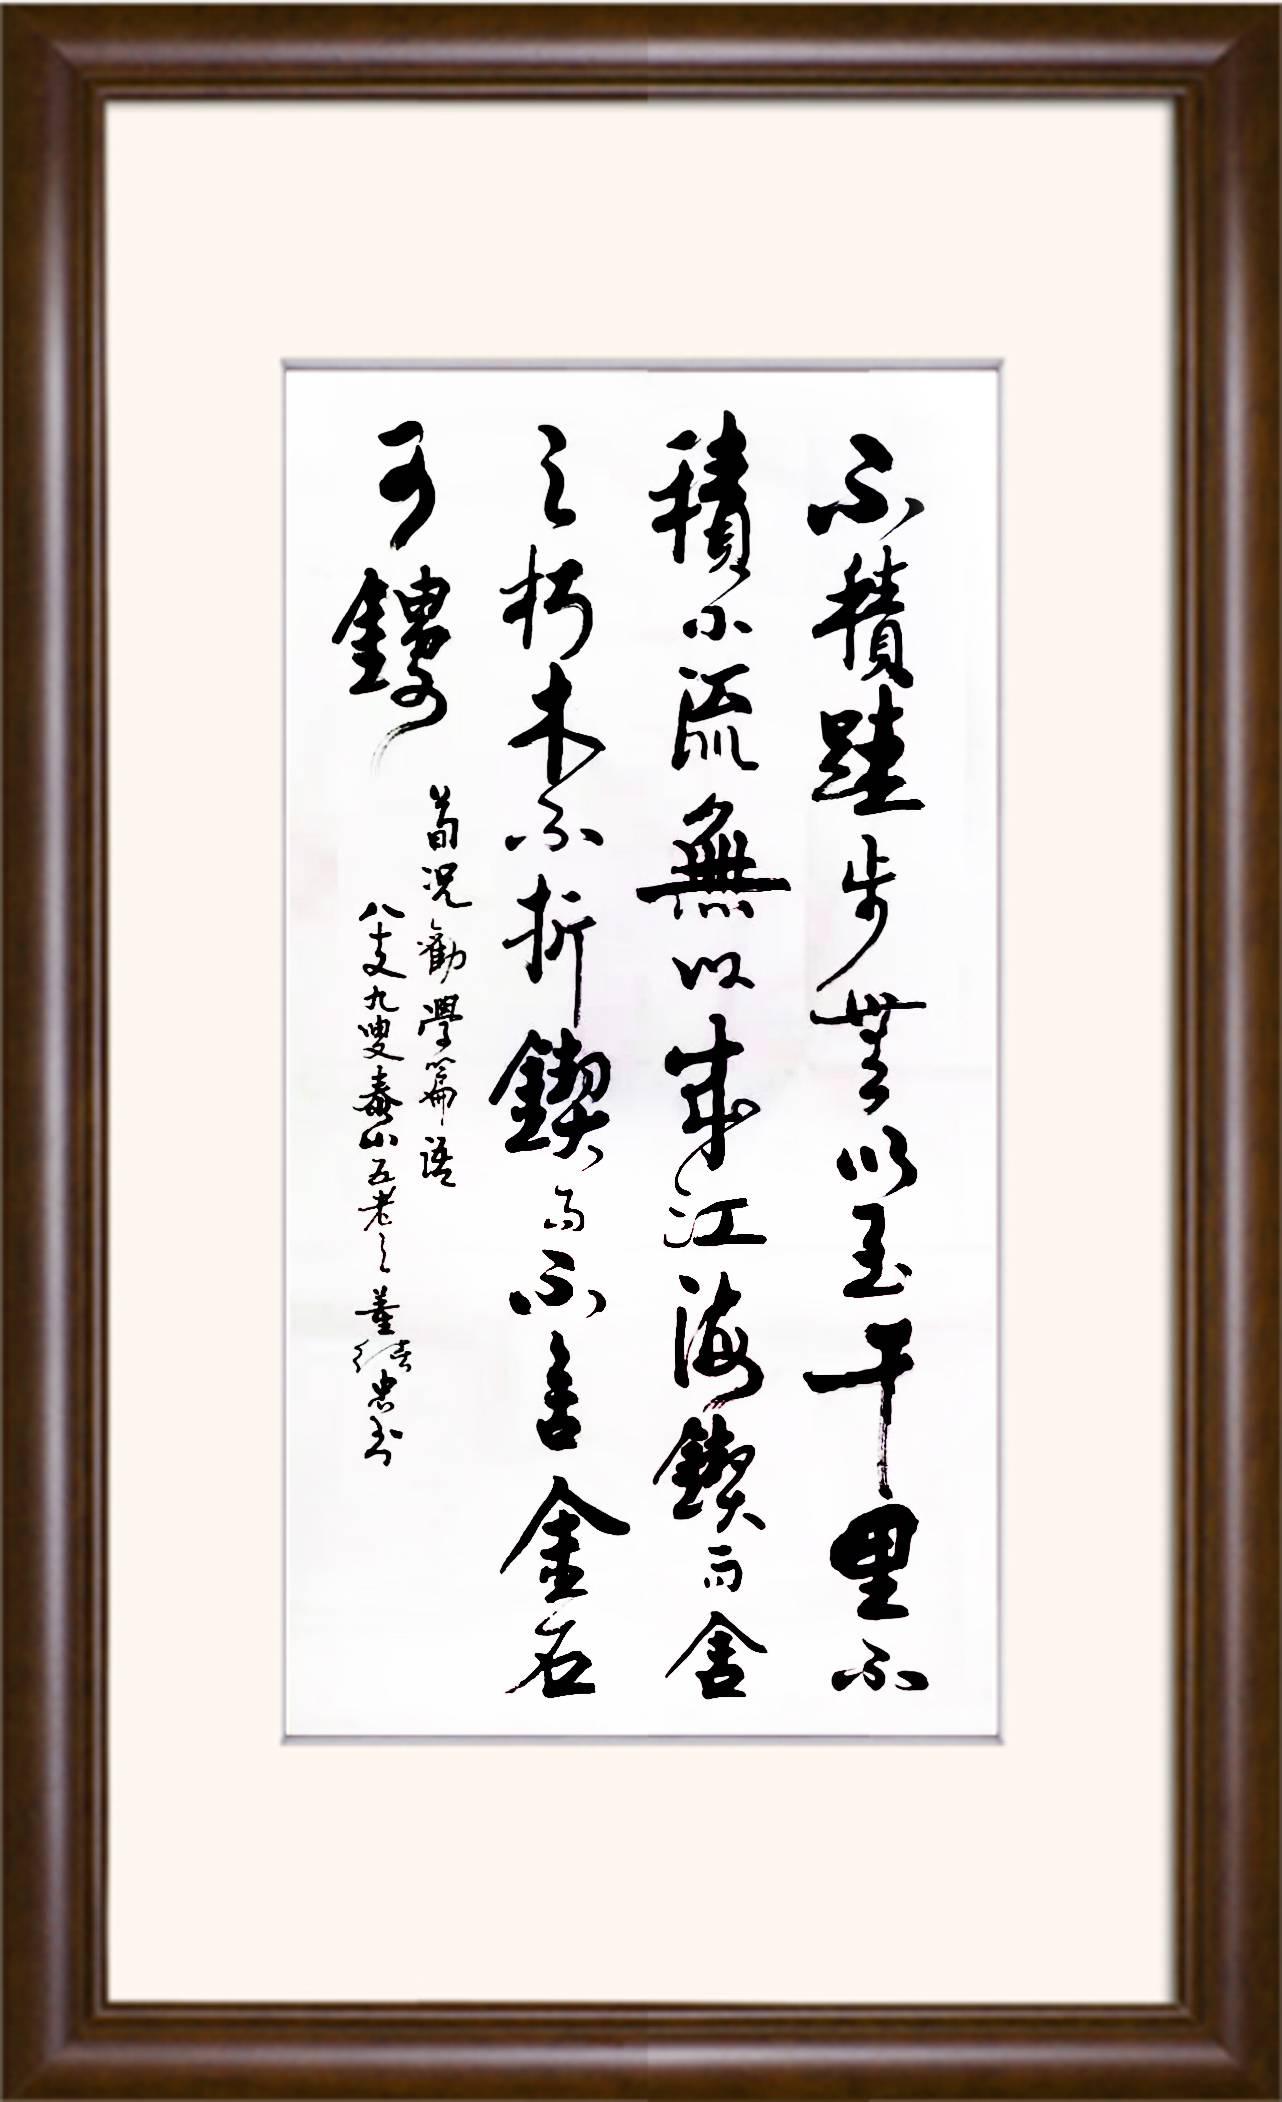 不積跬步無以至千里不
積小流無以成江海鍥而舍
之朽木不折鍥而不舍金石
可鏤
荀況勸學篇語
八十又九叟泰山五老之董績忠书